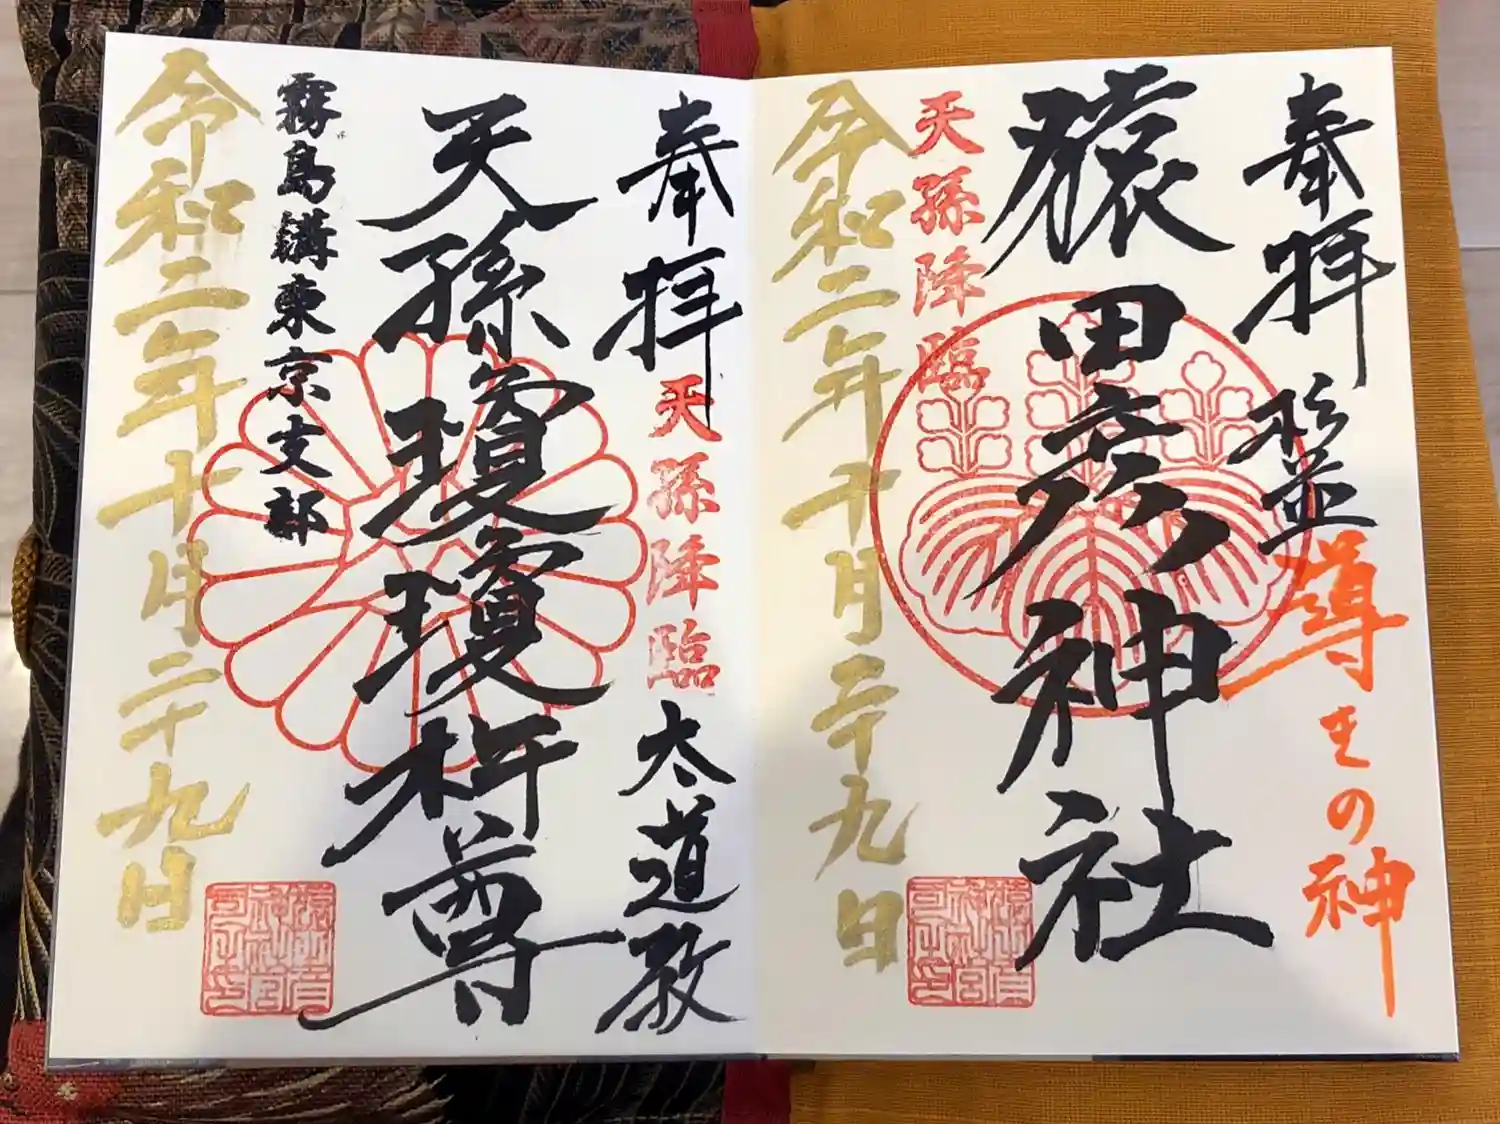 奉拝
導きの神
猿田彦神社
天孫降臨
令和二年十月二十九日
奉拝
天孫降臨
太道教
天孫瓊瓊杵尊
霧島講東京支部
令和二年十月二十九日